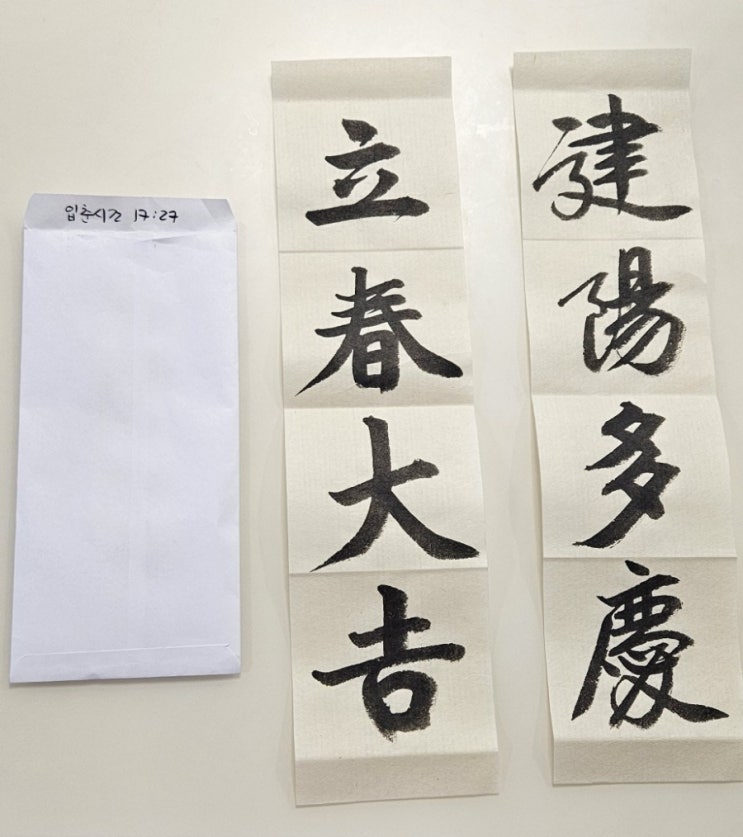 입춘시간 17:27
立春大吉
建陽多慶